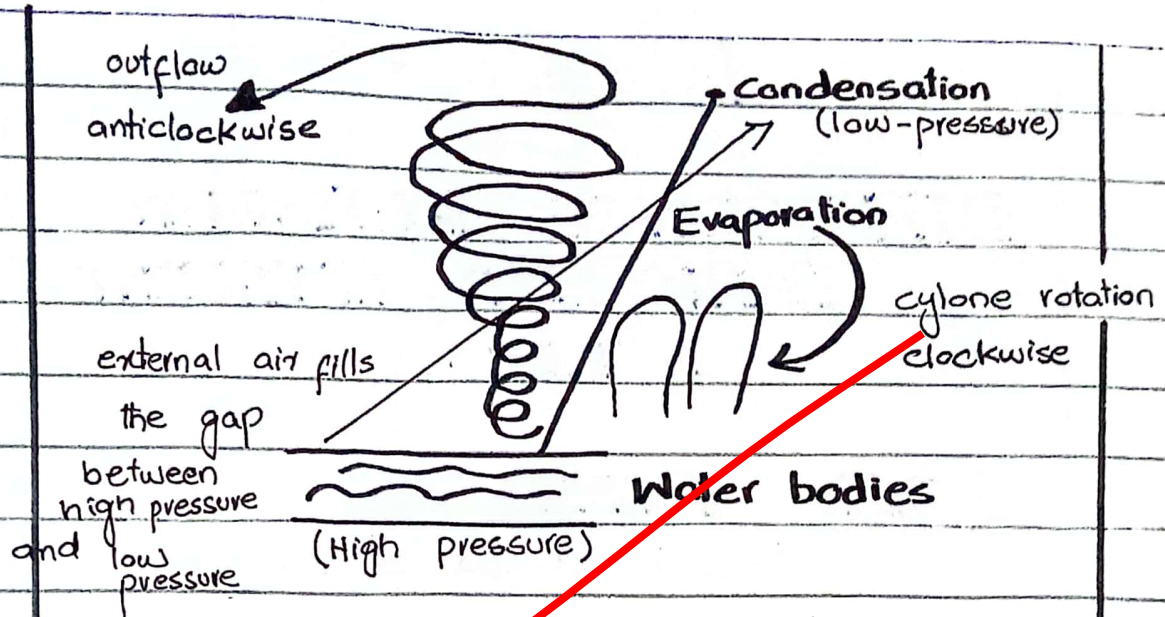 outflow
anticlockwise
Condensation
(low-pressure)
Evaporation
cylone rotation
clockwise
external air fills
the gap
between
high pressure
and low
pressure
Water bodies
(High pressure)